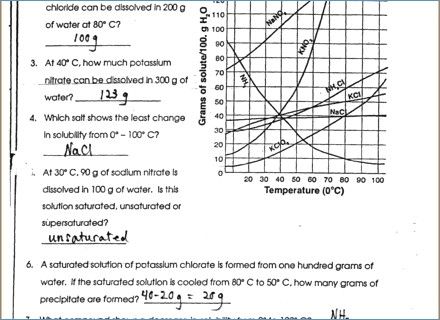 chloride can be dissolved in 200 g
of water at 80° C?
100 g
3. At 40° C, how much potassium
nitrate can be dissolved in 300 g of
water? 123 g
4. Which salt shows the least change
in solubility from 0° – 100° C?
NaCl
At 30° C, 90 g of sodium nitrate is
dissolved in 100 g of water. Is this
solution saturated, unsaturated or
supersaturated?
unsaturated
Grams of solute/100. g H₂O
110
100
90
80
70
60
50
40
30
20
10
0
NaNO₃
KNO₃
NH₃
NH₄Cl
KCl
NaCl
KClO₃
20 30 40 50 60 70 80 90 100
Temperature (0°C)
6. A saturated solution of potassium chlorate is formed from one hundred grams of
water. If the saturated solution is cooled from 80° C to 50° C, how many grams of
precipitate are formed? 40-20g = 20g
NH₃